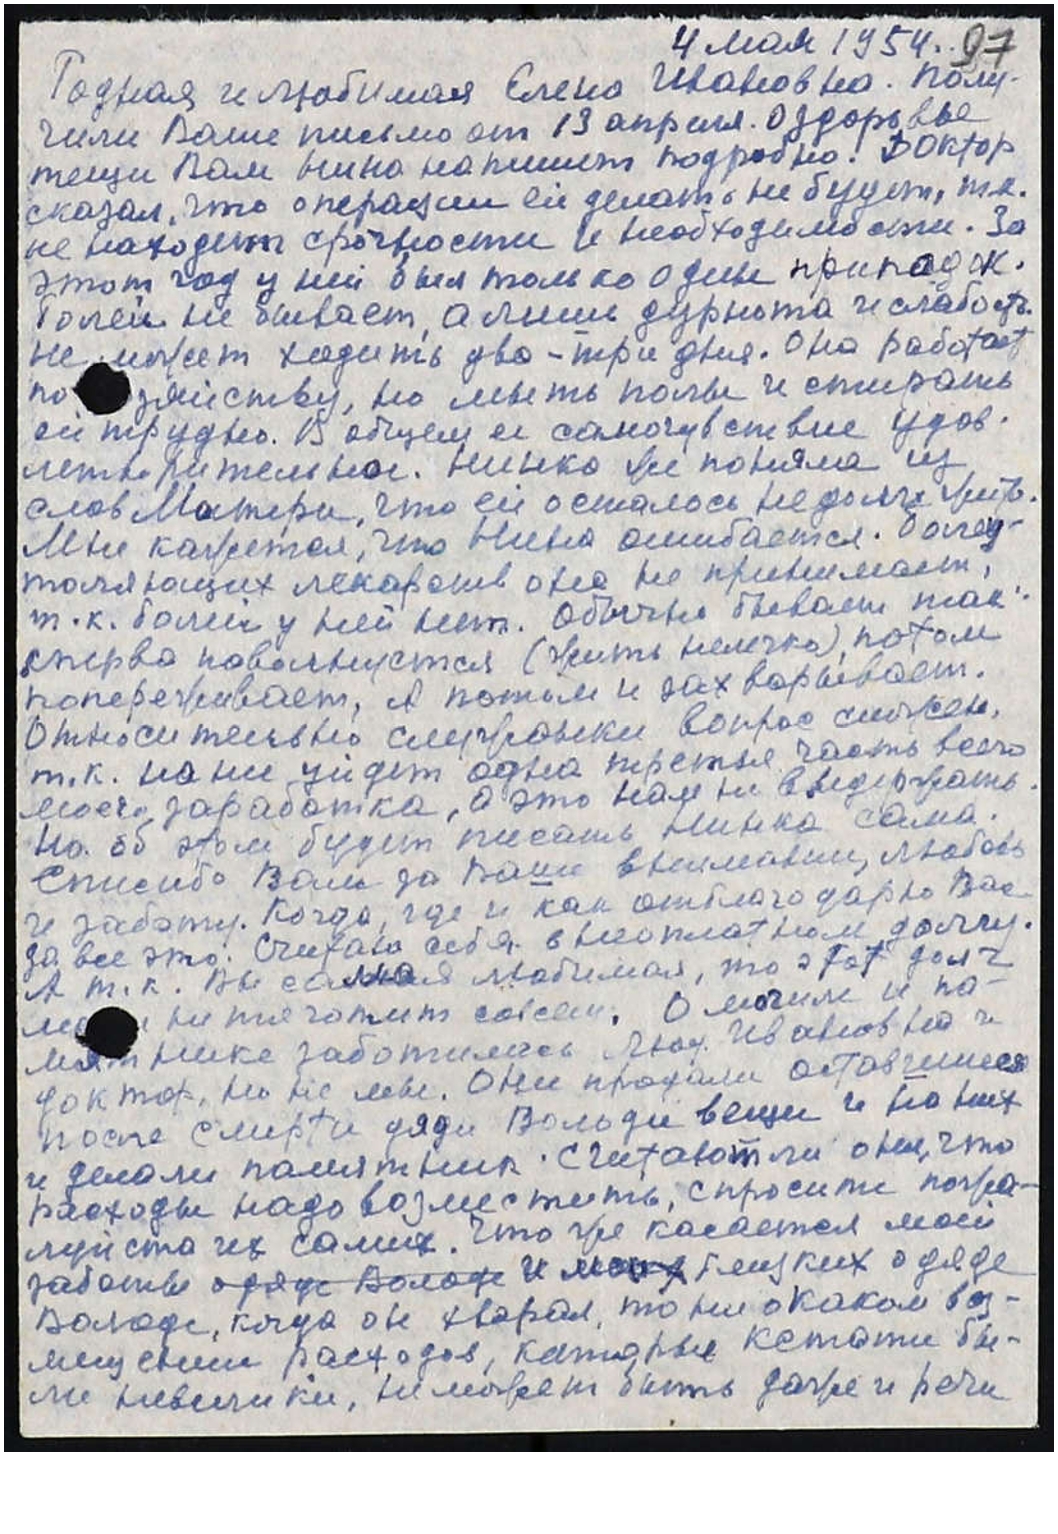 4 мая 1954. 97
Родная и любимая Елена Ивановна. Полу-
чили Ваше письмо от 13 апреля. О здоровье
тещи Вам Нина напишет подробно. Доктор
сказал, что операции ей делать не будет, т.к.
не находит срочности и необходимости. За
этот год у ней был только один припадок.
Болей не бывает, а лишь дурнота и слабость.
Не может ходить два-три дня. Она работает
по зяйству, но мыть полы и стирать
ей трудно. В общем ее самочувствие удов-
летворительное. Нинка же поняла из
слов Матери, что ей осталось недолго жить.
Мне кажется, что Нина ошибается. Болеу-
толяющих лекарств она не принимает,
т.к. болей у ней нет. Обычно бывает так:
сперва поволнуется (жить нелегко), потом
попереживает, а потом и захварывает.
Относительно служанки вопрос сложен,
т.к. на ни уйдет одна третья часть всего
моего заработка, а это нам не выдержать.
Но об этом будет писать Нинка сама.
Спасибо Вам за Ваши внимание, любовь
и заботу. Когда, где и как отблагодарю Вас
за все это. Считаю себя в неоплатном долгу.
А т.к. Вы самая любимая, то этот долг
ме не тяготит совсем. О могиле и па-
мятнике заботились Люд. Ивановна и
доктор, но не мы. Они продали оставшиеся
после смерти дяди Володи вещи и на них
и делали памятник. Считают ли они, что
расходы надо возместить, спросите пожа-
луйста их самих. Что же касается моей
заботы о дяде Володе и моих близких о дяде
Володе, когда он хворал, то ни о каком воз-
мещении расходов, которые кстати бы-
ли невелики, не может быть даже и речи